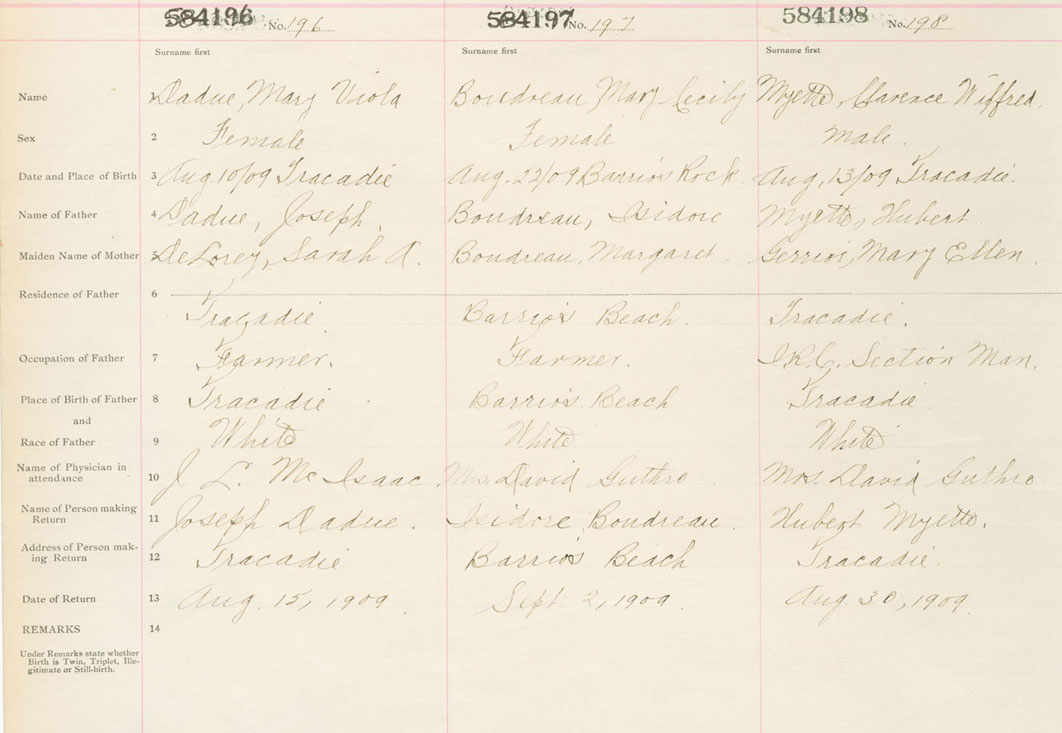 584196 No. 196 584197 No. 197 584198 No. 198
Surname first Surname first Surname first
Name 1 Dadue, Mary Viola Boudreau Mary Cecily Myette, Clarence Wilfred.
Sex 2 Female Female Male.
Date and Place of Birth 3 Aug 10/09 Tracadie Aug. 22/09 Barrios Rock Aug, 13/09 Tracadie.
Name of Father 4 Dadue, Joseph, Boudreau, Isidore Myette, Hubert
Maiden Name of Mother 5 DeLorey, Sarah A. Boudreau, Margaret. Gerrior, Mary Ellen.
Residence of Father 6
Tracadie Barrios Beach. Tracadie.
Occupation of Father 7 Farmer. Farmer. I.R.C. Section Man.
Place of Birth of Father 8 Tracadie Barrios Beach Tracadie
and
Race of Father 9 White White White
Name of Physician in
attendance 10 J L. McIsaac Mrs. David Guthro Mrs. David Guthro
Name of Person making
Return 11 Joseph Dadue. Isidore Boudreau. Hubert Myette.
Address of Person mak-
ing Return 12 Tracadie Barrios Beach Tracadie.
Date of Return 13 Aug. 15, 1909. Sept 2, 1909. Aug. 30, 1909.
REMARKS 14
Under Remarks state whether
Birth is Twin, Triplet, Ille-
gitimate or Still-birth.